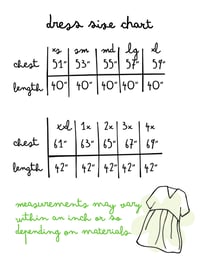 dress size chart
xs sm md lg xl
chest 51" 53" 55" 57" 59"
length 40" 40" 40" 40" 40"
xxl 1x 2x 3x 4x
chest 61" 63" 65" 67" 69"
length 42" 42" 42" 42" 42"
measurements may vary
within an inch or so
depending on materials